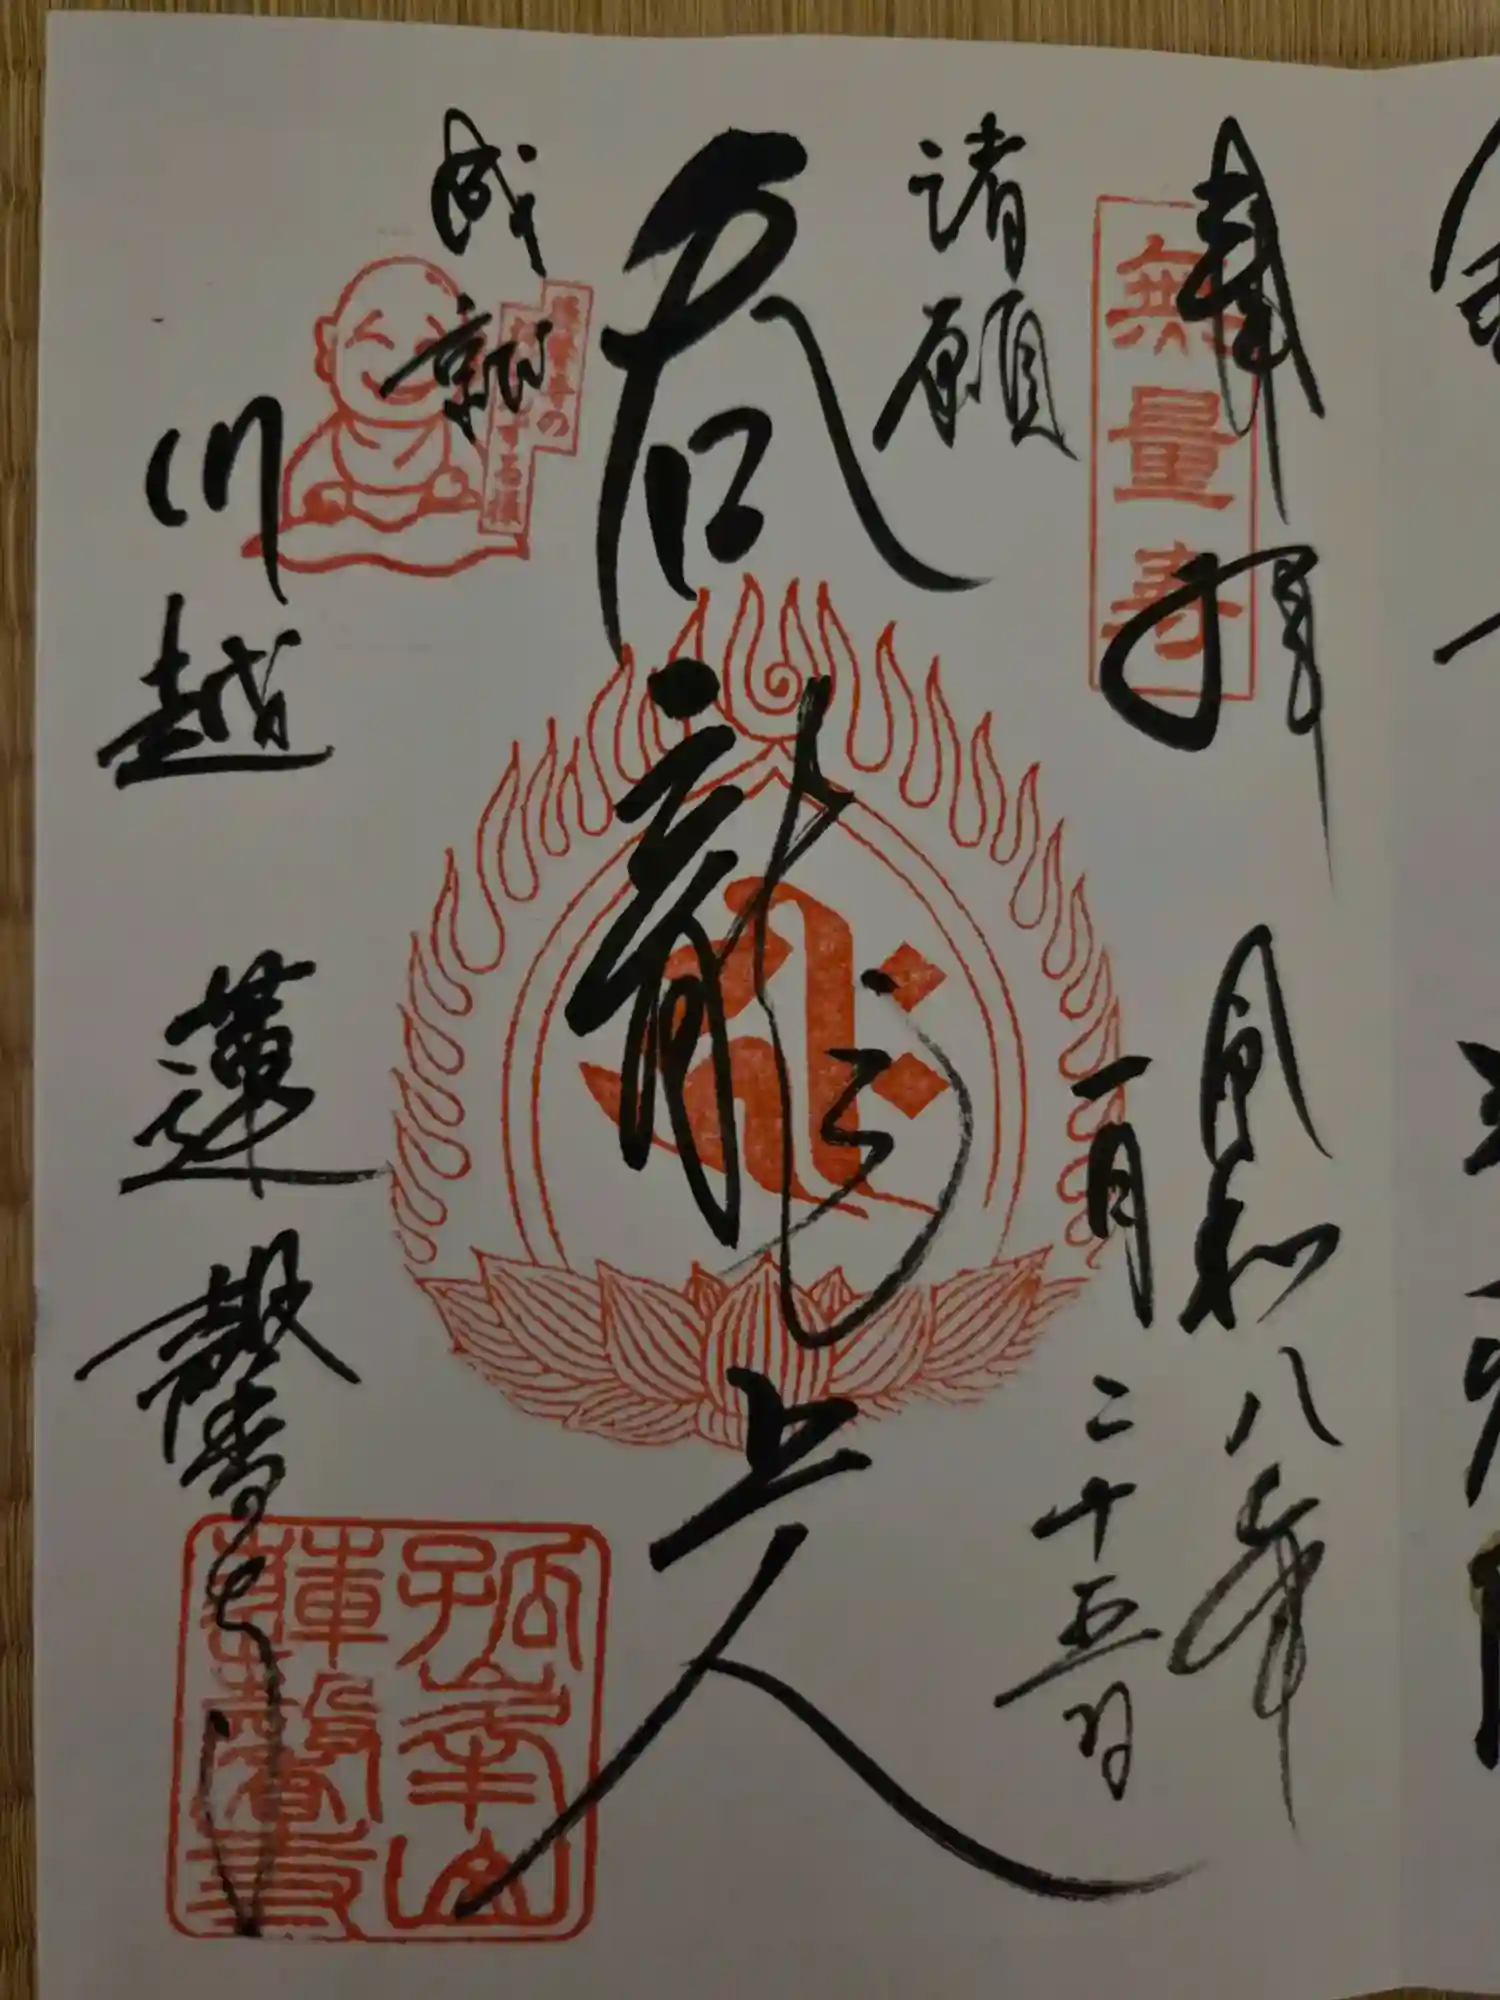 奉拝
無量寿
令和八年
一月二十五日
諸願
呑龍上人
成就
蓮馨寺の
ずる様
川越 蓮馨寺
孤峯山
蓮馨寺